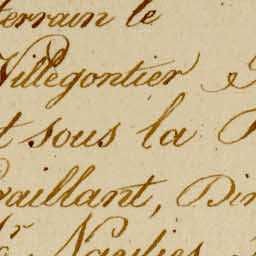 terrain le
Villegontier
t sous la
vaillant, Dir
Mr Naulies